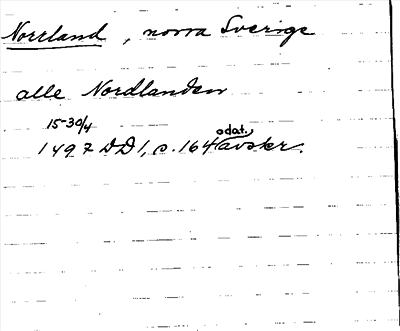 Norrland, norra Sverige
alle Nordlanden
15-30/4
odat.
1497 DD1, s. 164 avskr.